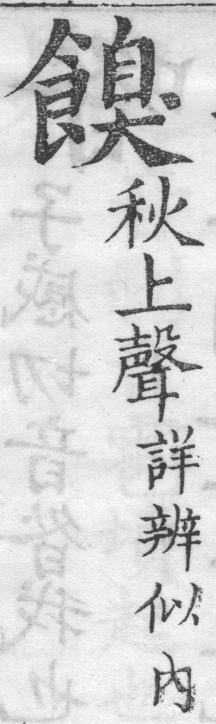 䭆秋上聲詳辨似內